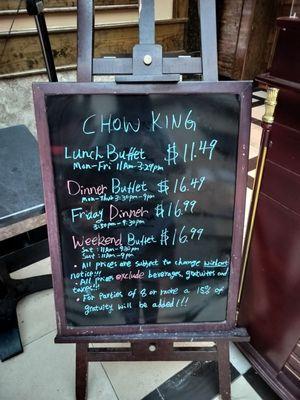 CHOW KING
Lunch Buffet $11.49
Mon-Fri 11AM-3:29pm
Dinner Buffet $16.49
Mon-Thu 3:30pm-9pm
Friday Dinner $16.99
3:30pm-9:30pm
Weekend Buffet $16.99
Sat: 11AM-9:30pm
Sun: 11AM-9pm
• All prices are subject to change without
notice!!!
• All prices exclude beverages, gratuities and
taxes!!!
• For parties of 8 or more a 15%
gratuity will be added!!!